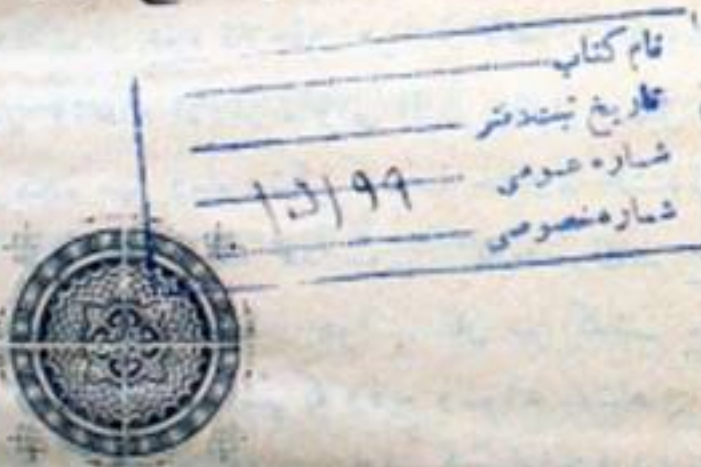 نام کتاب
تاریخ ثبت دفتر
شماره عمومی
شماره خصوصی